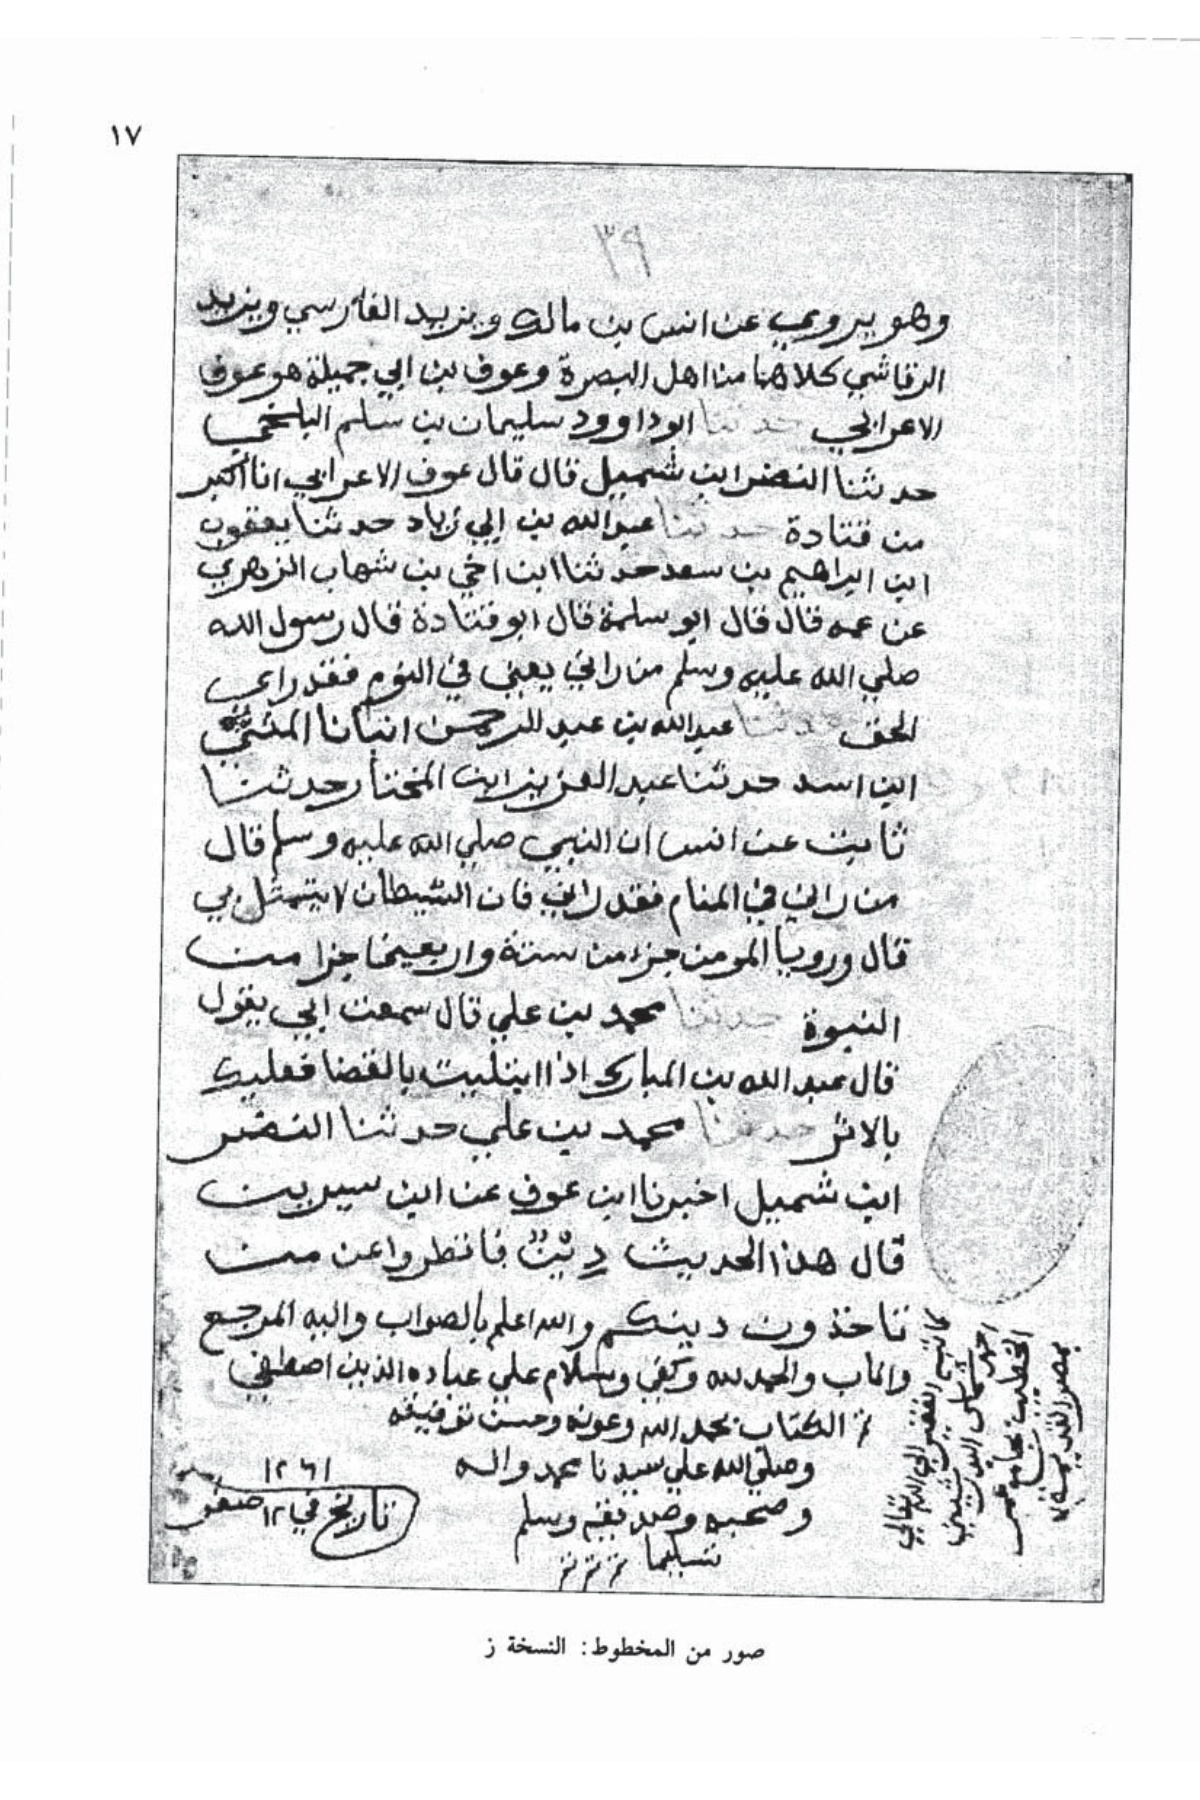 ١٧
٣٩
وهو يروي عن انس بن مالك ويزيد الفارسي ويزيد
الرقاشي كلاهما من اهل البصرة وعوف بن ابي جميلة هو عوف
الاعرابي حدثنا ابو داوود سليمان بن سلم البلخي
حدثنا النضر ابن شميل قال قال عوف الاعرابي انا اكبر
من قتادة حدثنا عبد الله بن ابي زياد حدثنا يعقوب
ابن ابراهيم بن سعد حدثنا ابن اخي بن شهاب الزهري
عن عمه قال قال ابو سلمة قال ابو قتادة قال رسول الله
صلي الله عليه وسلم من راني يعني في النوم فقد راي
الحق حدثنا عبد الله بن عبد الرحمن انبانا المثني
ابن اسد حدثنا عبد العزيز ابن المختار حدثنا
ثابت عن انس ان النبي صلي الله عليه وسلم قال
من راني في المنام فقد راني فان الشيطان لا يتمثل بي
قال ورويا المومن جزا من ستة واربعين جزا من
النبوة حدثنا محمد بن علي قال سمعت ابي يقول
قال عبد الله بن المبارك اذا ابتليت بالقضا فعليك
بالاثر حدثنا محمد بن علي حدثنا النضر
ابن شميل اخبرنا ابن عوف عن ابن سيرين
قال هذا الحديث دين فانظروا عن من
تاخذون دينكم والله اعلم بالصواب واليه المرجع
والماب والحمد لله وكفي وسلام علي عباده الذين اصطفي
تم الكتاب بحمد الله وعونه وحسن توفيقه
وصلي الله علي سيدنا محمد واله
وصحبه وسلم
تسليما
م م م
١٢٦١
تاريخ في ١٢ صفر
كاتبه الفقير الي الله تعالي
احمد
الخطيب بجامع
بمصر القديمة
صور من المخطوط: النسخة ز